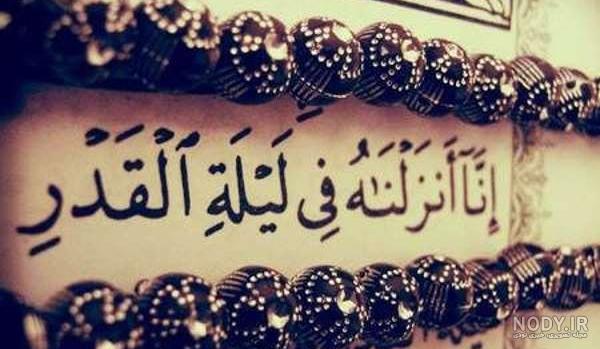 إِنَّآ أَنزَلْنَٰهُ فِى لَيْلَةِ ٱلْقَدْرِ
NODY.IR